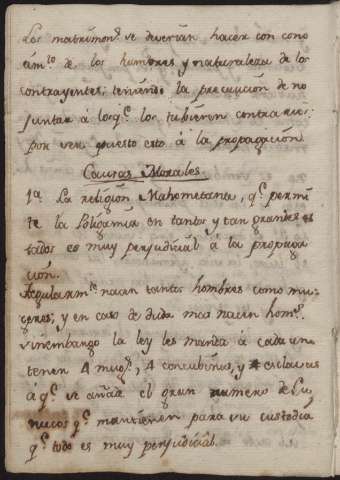 Los matrimon.s se deverian hacer con cono
cim.to de los humores y naturaleza de los
contrayentes; teniendo la precaucion de no
juntar á los q.e los tubieren contrarios:
por ser opuesto esto á la propagacion
Causas Morales.
1.a La religion Mahometana, q.e permi
te la Poligamia en tantos y tan grandes es
tados es muy perjudicial á la propaga
cion.
Regularm.te nacen tantos hombres como mu
geres; y en caso de duda mas nacen hom.s
sinembargo la ley les manda á cada uno
tener 4 mug.s, 4 concubinas, y 4 esclavas
á q.e se añade el gran numero de Eu
nucos q.e mantienen para su custodia
q.e todo es muy perjudicial.